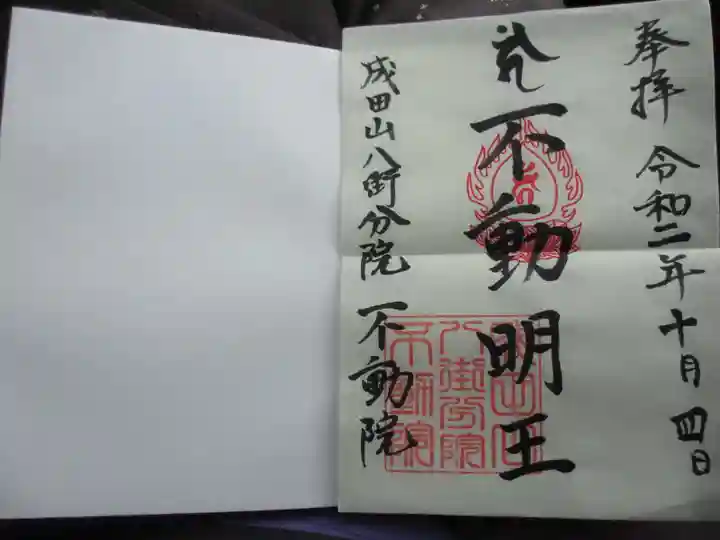 奉拝 令和二年十月四日
不動明王
成田山八街分院 不動院